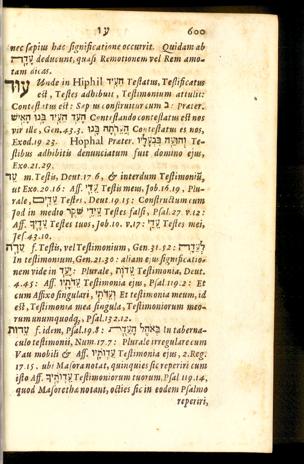 עו 600
nec sæpius hac significatione occurrit. Quidam ab
עֲדָרָה deducunt, quasi Remotionem vel Rem amo-
tam dicas.
עוּד Unde in Hiphil הֵעִיד Testatus, Testificatus
est, Testes adhibuit, Testimonium attulit:
Contestatus est: Sæpius construitur cum ב: Præter.
הָעֵד הֵעִיד בָּנוּ הָאִישׁ Contestando contestatus est nos
vir ille, Gen. 43. 3. הַעֵדֹתָה בָּנוּ Contestatus es nos,
Exod. 19 23. Hophal Præter. וְהוּעַד בִּבְעָלָיו Te-
stibus adhibitis denunciatum fuit domino ejus,
Exo. 21. 29.
עֵד m. Testis, Deut. 17. 6, & interdum Testimoniũ,
ut Exo. 20. 16: Aff. עֵדִי Testis meus, Job. 16. 19, Plu-
rale, עֵדִים Testes, Deut. 19. 15: Constructum cum
Jod in medio עֵידֵי שֶׁקֶר Testes falsi, Psal. 27. v. 12:
Aff. עֵדֶיךָ Testes tuos, Job. 10. v. 17: עֵדַי Testes mei,
Jes. 43. 10.
עֵדָה f. Testis, vel Testimonium, Gen. 31. 52: לְעֵדָה
In testimonium, Gen. 21. 30: aliam ejus significatio-
nem vide in יָעַד: Plurale, עֵדֹת Testimonia, Deut.
4. 45: Aff. עֵדֹתָיו Testimonia ejus, Psal. 119. 2: Et
cum Affixo singulari, וְעֵדֹתִי Et testimonia meum, id
est, Testimonia mea singula, Testimoniorum meo-
rum unumquodq;, Psal. 132. 12.
עֵדוּת f. idem, Psal. 19. 8: בְּאֹהֶל הָעֵדֻת In taberna-
culo testimonii, Num. 17. 7: Plurale irregulare cum
Vau mobili & Aff. עֵדְוֹתָיו Testimonia ejus, 2. Reg.
17. 15. ubi Masora notat, quinquies sic reperiri cum
isto Aff. עֵדְוֹתֶיךָ Testimoniorum tuorum, Psal 119. 14,
quod Masorethæ notant, octies sic in eodem Psalmo
reperiri,